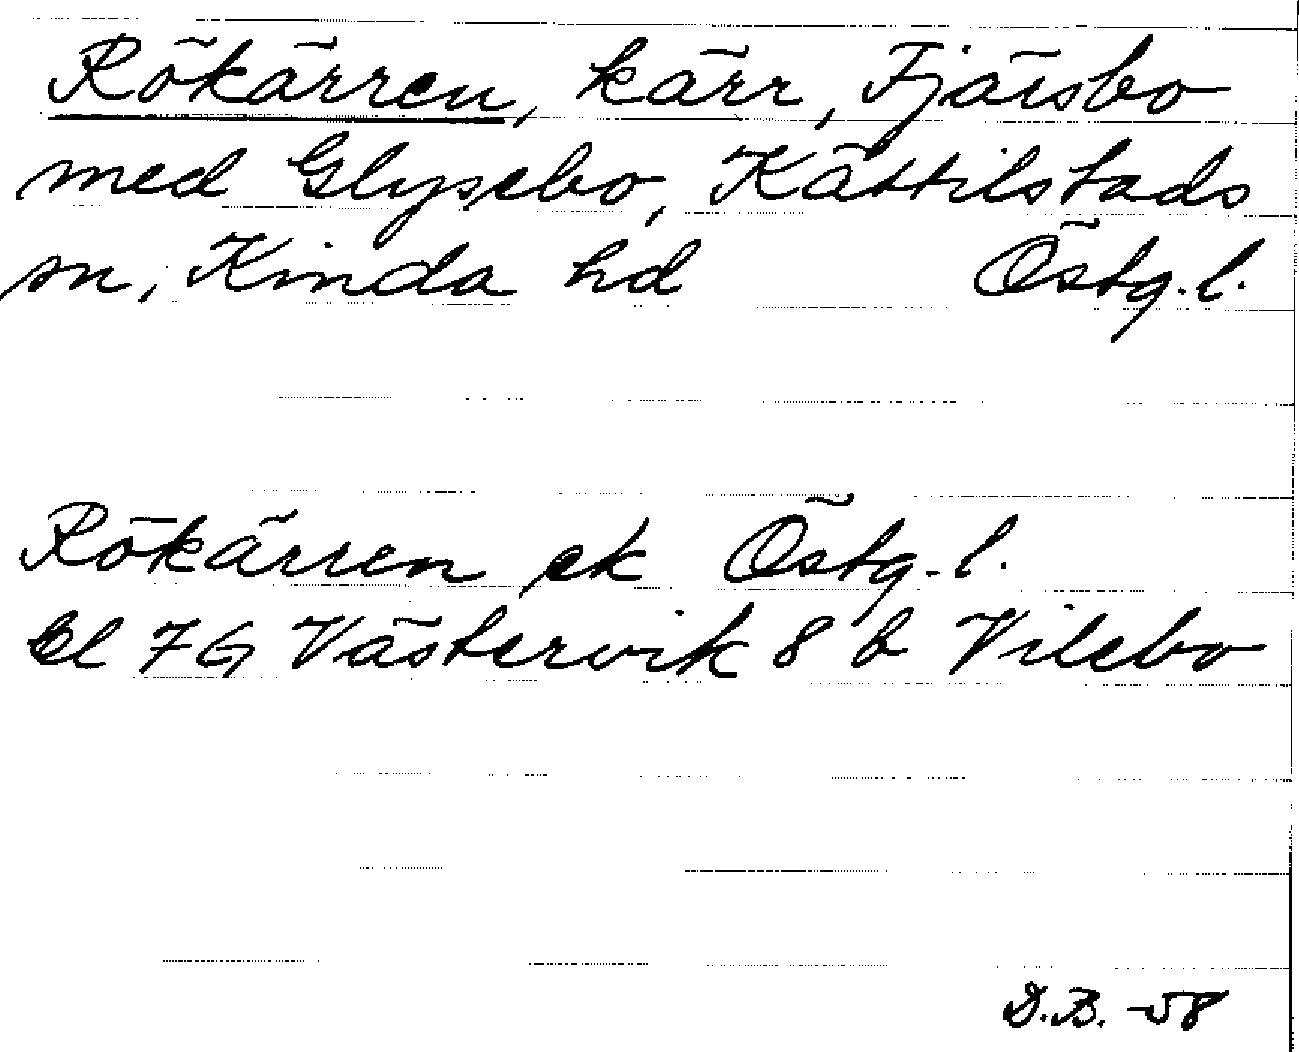 Rökärren, kärr, Fjärsbo
med Glysebo, Kättilstads
sn, Kinda hd Östg. l.
Rökärren ek Östg. l.
bl 7G Västervik 8 b Vilebo
D.B. -58